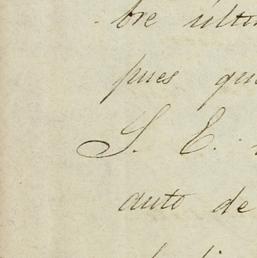 bre últi
pues qu
S. E.
auto de